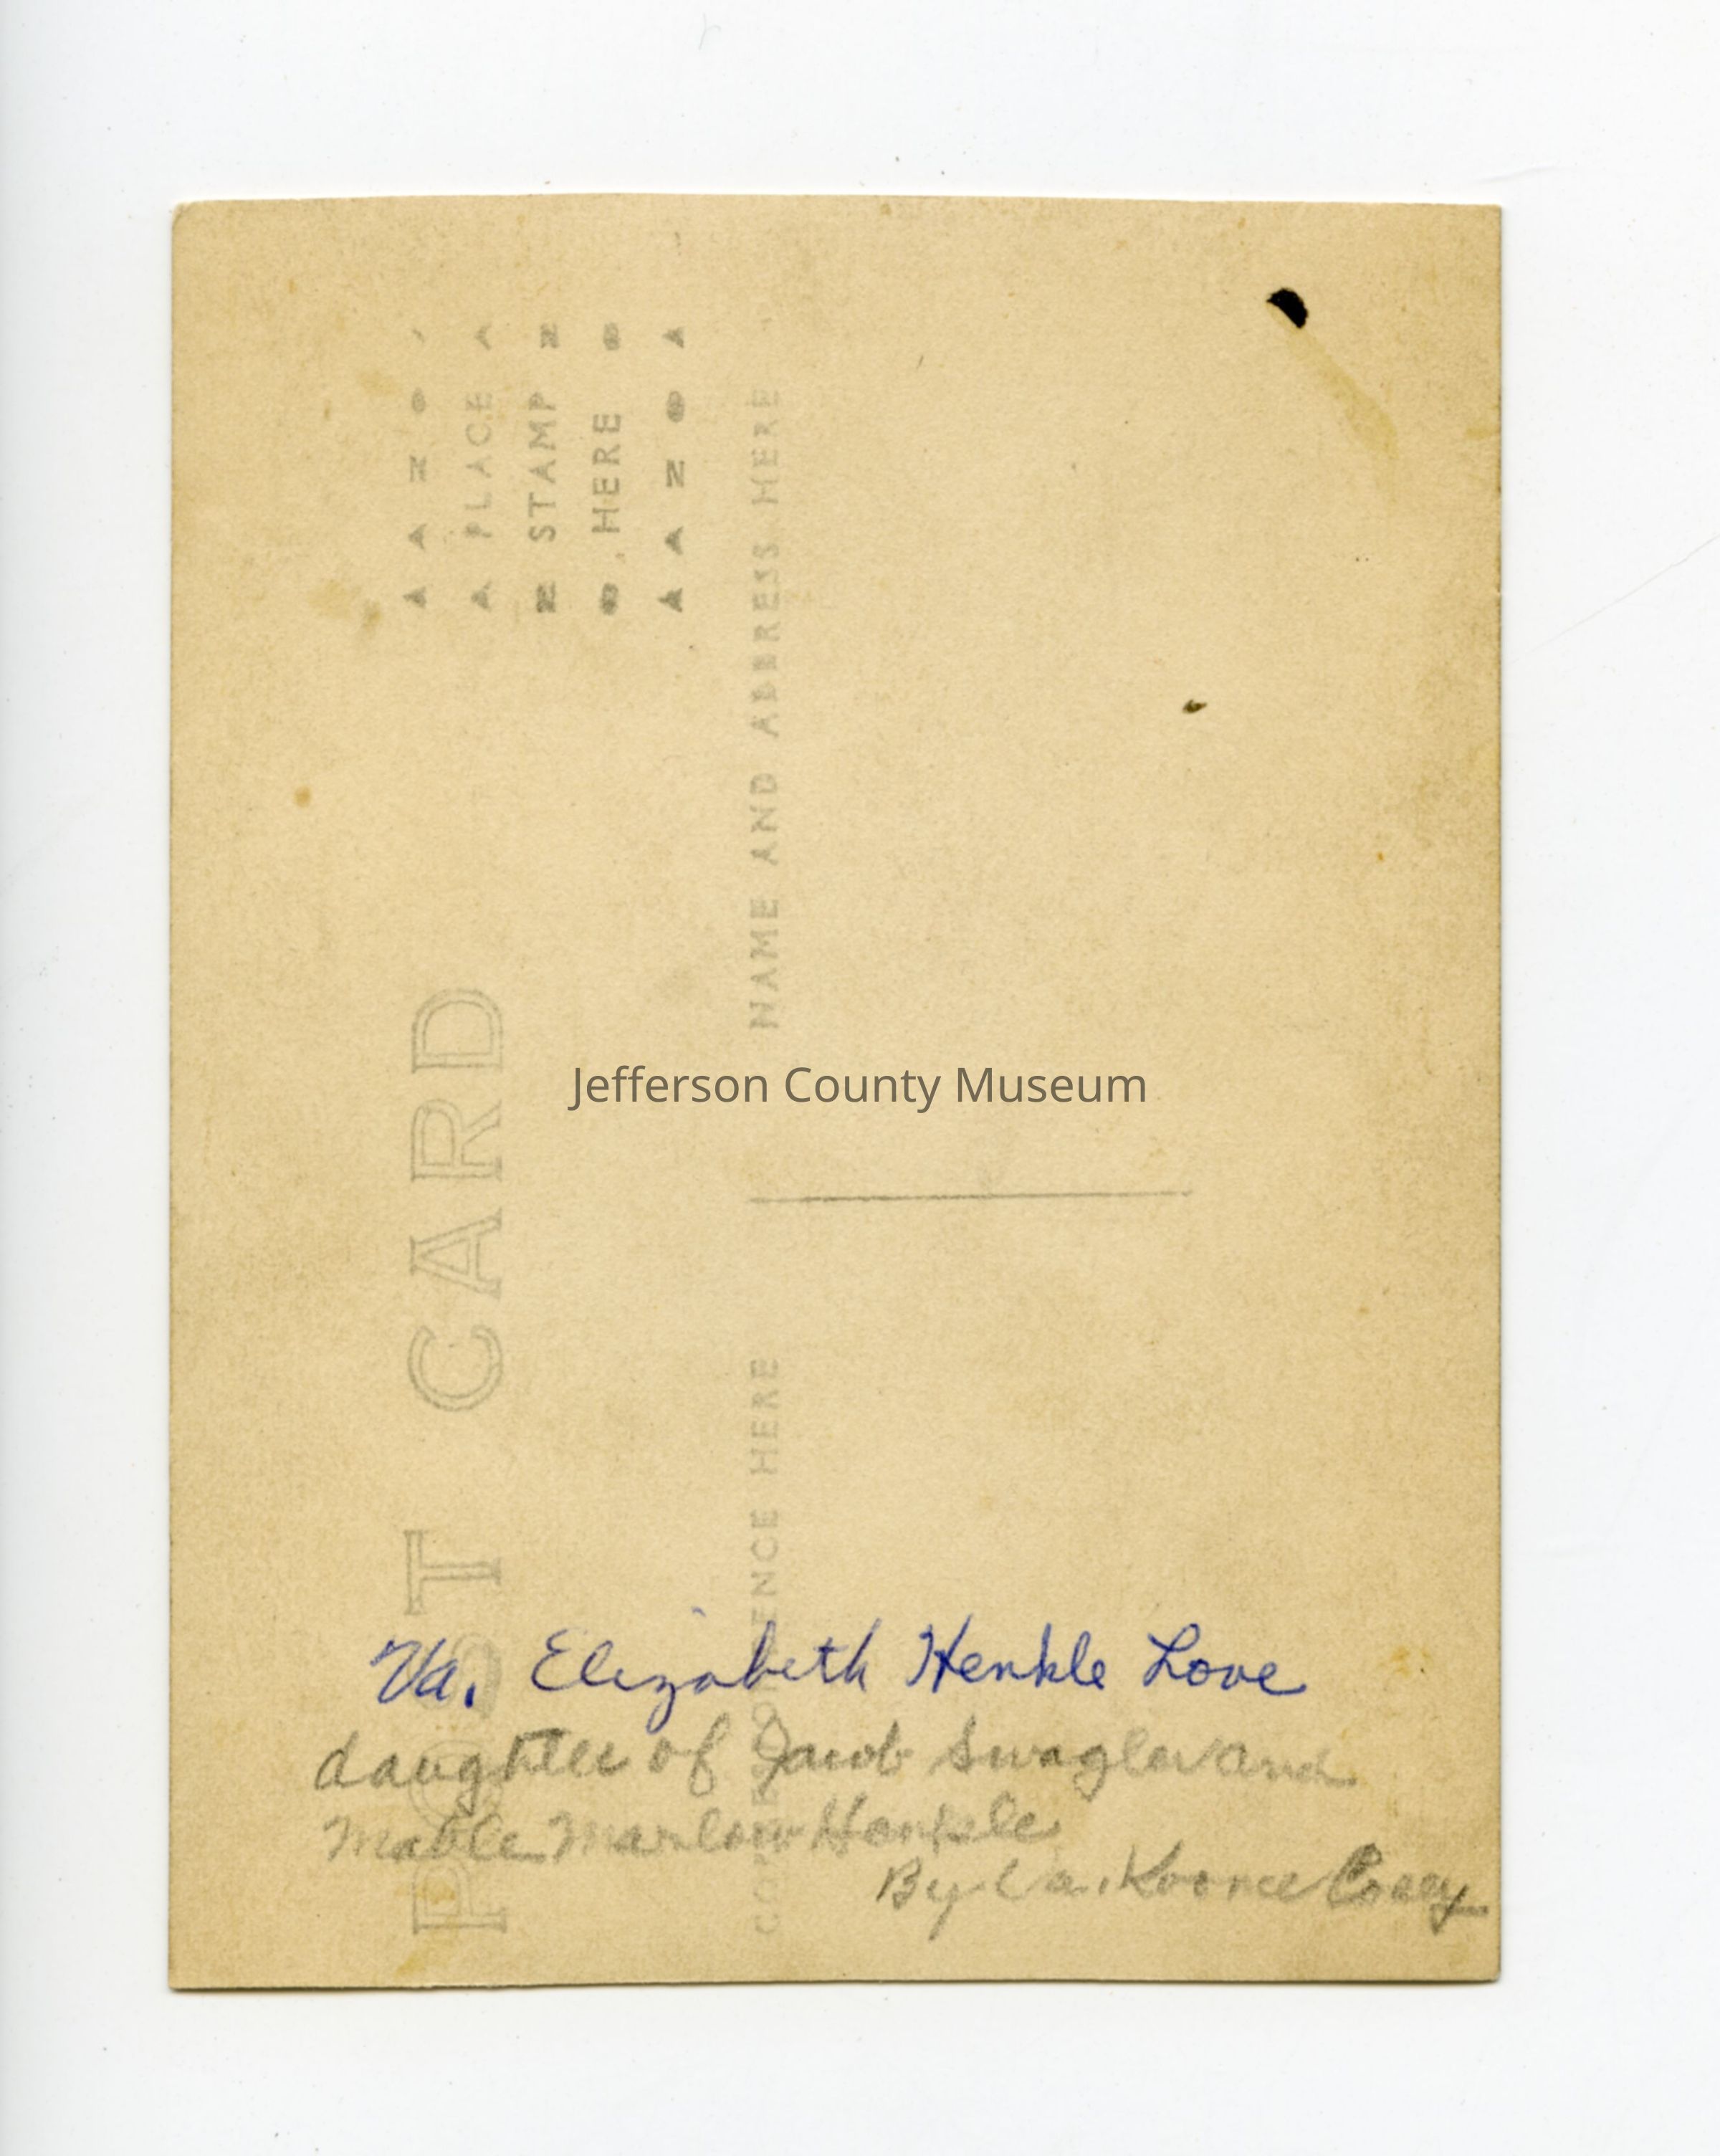 POST CARD
▲ ▲ N ●
▲ PLACE ▲
N STAMP N
● HERE ●
▲ ▲ N ● ▲
CORRESPONDENCE HERE
NAME AND ADDRESS HERE
Jefferson County Museum
Va. Elizabeth Henkle Love
daughter of Jacob Swagler and
Mable Marlow Henkle
By Va. Koonce Corey